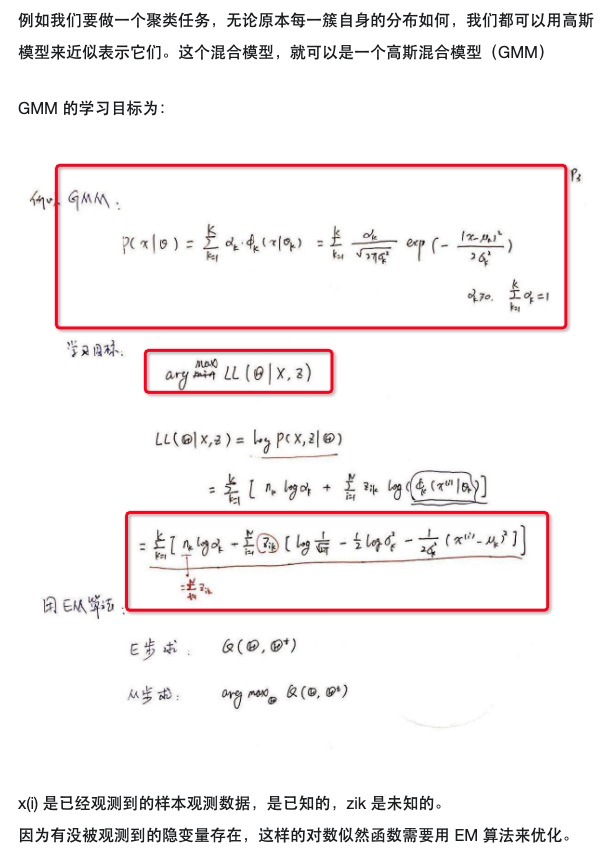 例如我们要做一个聚类任务，无论原本每一簇自身的分布如何，我们都可以用高斯
模型来近似表示它们。这个混合模型，就可以是一个高斯混合模型（GMM）
GMM 的学习目标为：
P3
例如 GMM：
P(x|θ) = Σ_{k=1}^{K} α_k · ϕ_k(x|θ_k) = Σ_{k=1}^{K} α_k/√(2πσ_k²) exp(-(x-μ_k)²/2σ_k²)
α_k≥0. Σ_{k=1}^{K} α_k=1
学习目标：
arg max LL(Θ|X,Z)
LL(Θ|X,Z) = log P(X,Z|Θ)
= Σ_{k=1}^{K} [ n_k log α_k + Σ_{i=1}^{N} z_ik log(ϕ_k(x^(i)|θ_k)) ]
= Σ_{k=1}^{K} [ n_k log α_k + Σ_{i=1}^{N} z_ik [ log 1/√2π - 1/2 log σ_k² - 1/2σ_k² (x^(i) - μ_k)² ] ]
= Σ_{i=1}^{N} z_ik
用EM算法：
E步求： Q(Θ, Θ^t)
M步求： arg max_Θ Q(Θ, Θ^t)
x(i) 是已经观测到的样本观测数据，是已知的，zik 是未知的。
因为有没被观测到的隐变量存在，这样的对数似然函数需要用 EM 算法来优化。